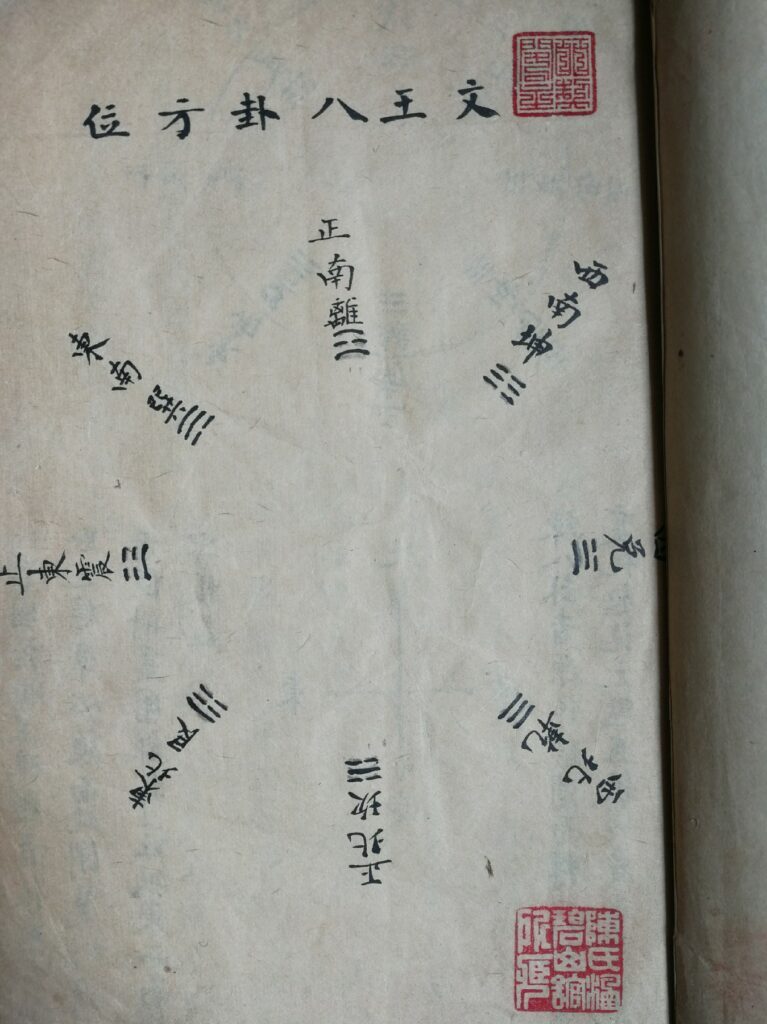 文王八卦方位
正南離☲
西南坤☷
兌☱
西北乾☰
正北坎☵
東北艮☶
正東震☳
東南巽☴